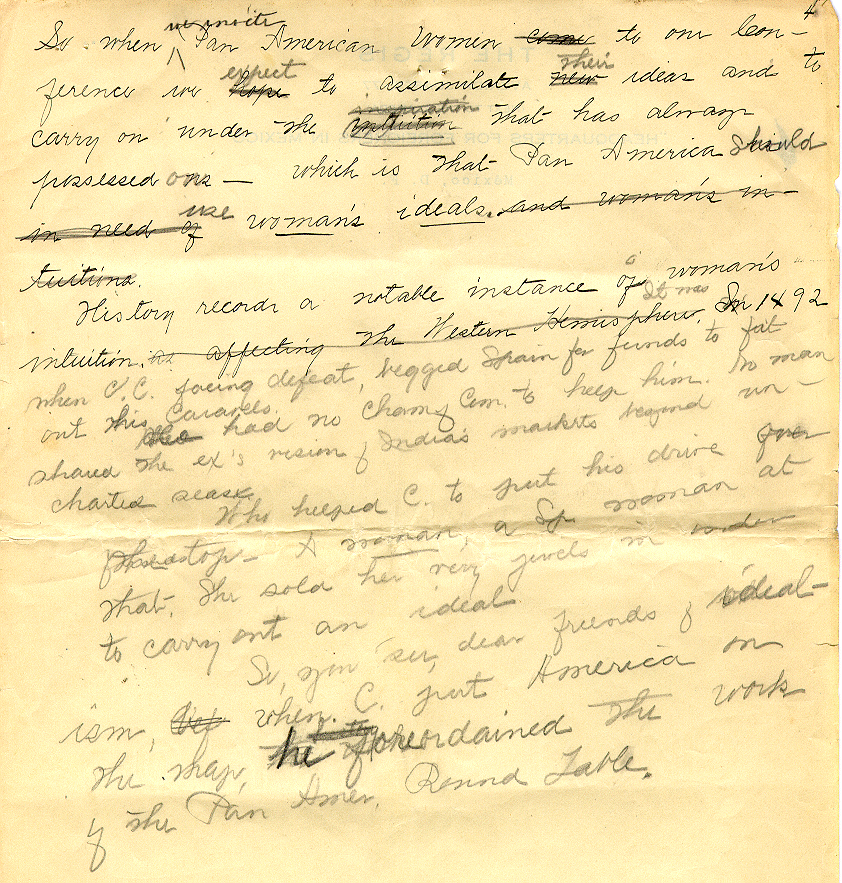 4
we invite
So when Pan American Women come to our Con-
expect their
ference we hope to assimilate new ideas and to
inspiration
carry on under the intuition that has always
possessed us — which is that Pan America should
use
in need of woman's ideals. and woman's in-
tuitions.
History records a notable instance of woman's
It was
intuition, as affecting the Western Hemisphere. In 1492
when C.C. facing defeat, begged Spain for funds to fit
out his Caravels.
had no Cham Com. to help him. No man
shared the ex's vision of India's markets beyond un-
charted seas.
Who helped C. to put his drive over
the top — A woman, a Sp woman at
that. She sold her very jewels in order
to carry out an ideal
So, you see, dear friends of ideal-
ism, when C. put America on
the map, he foreordained the work
of the Pan Amer. Round Table.